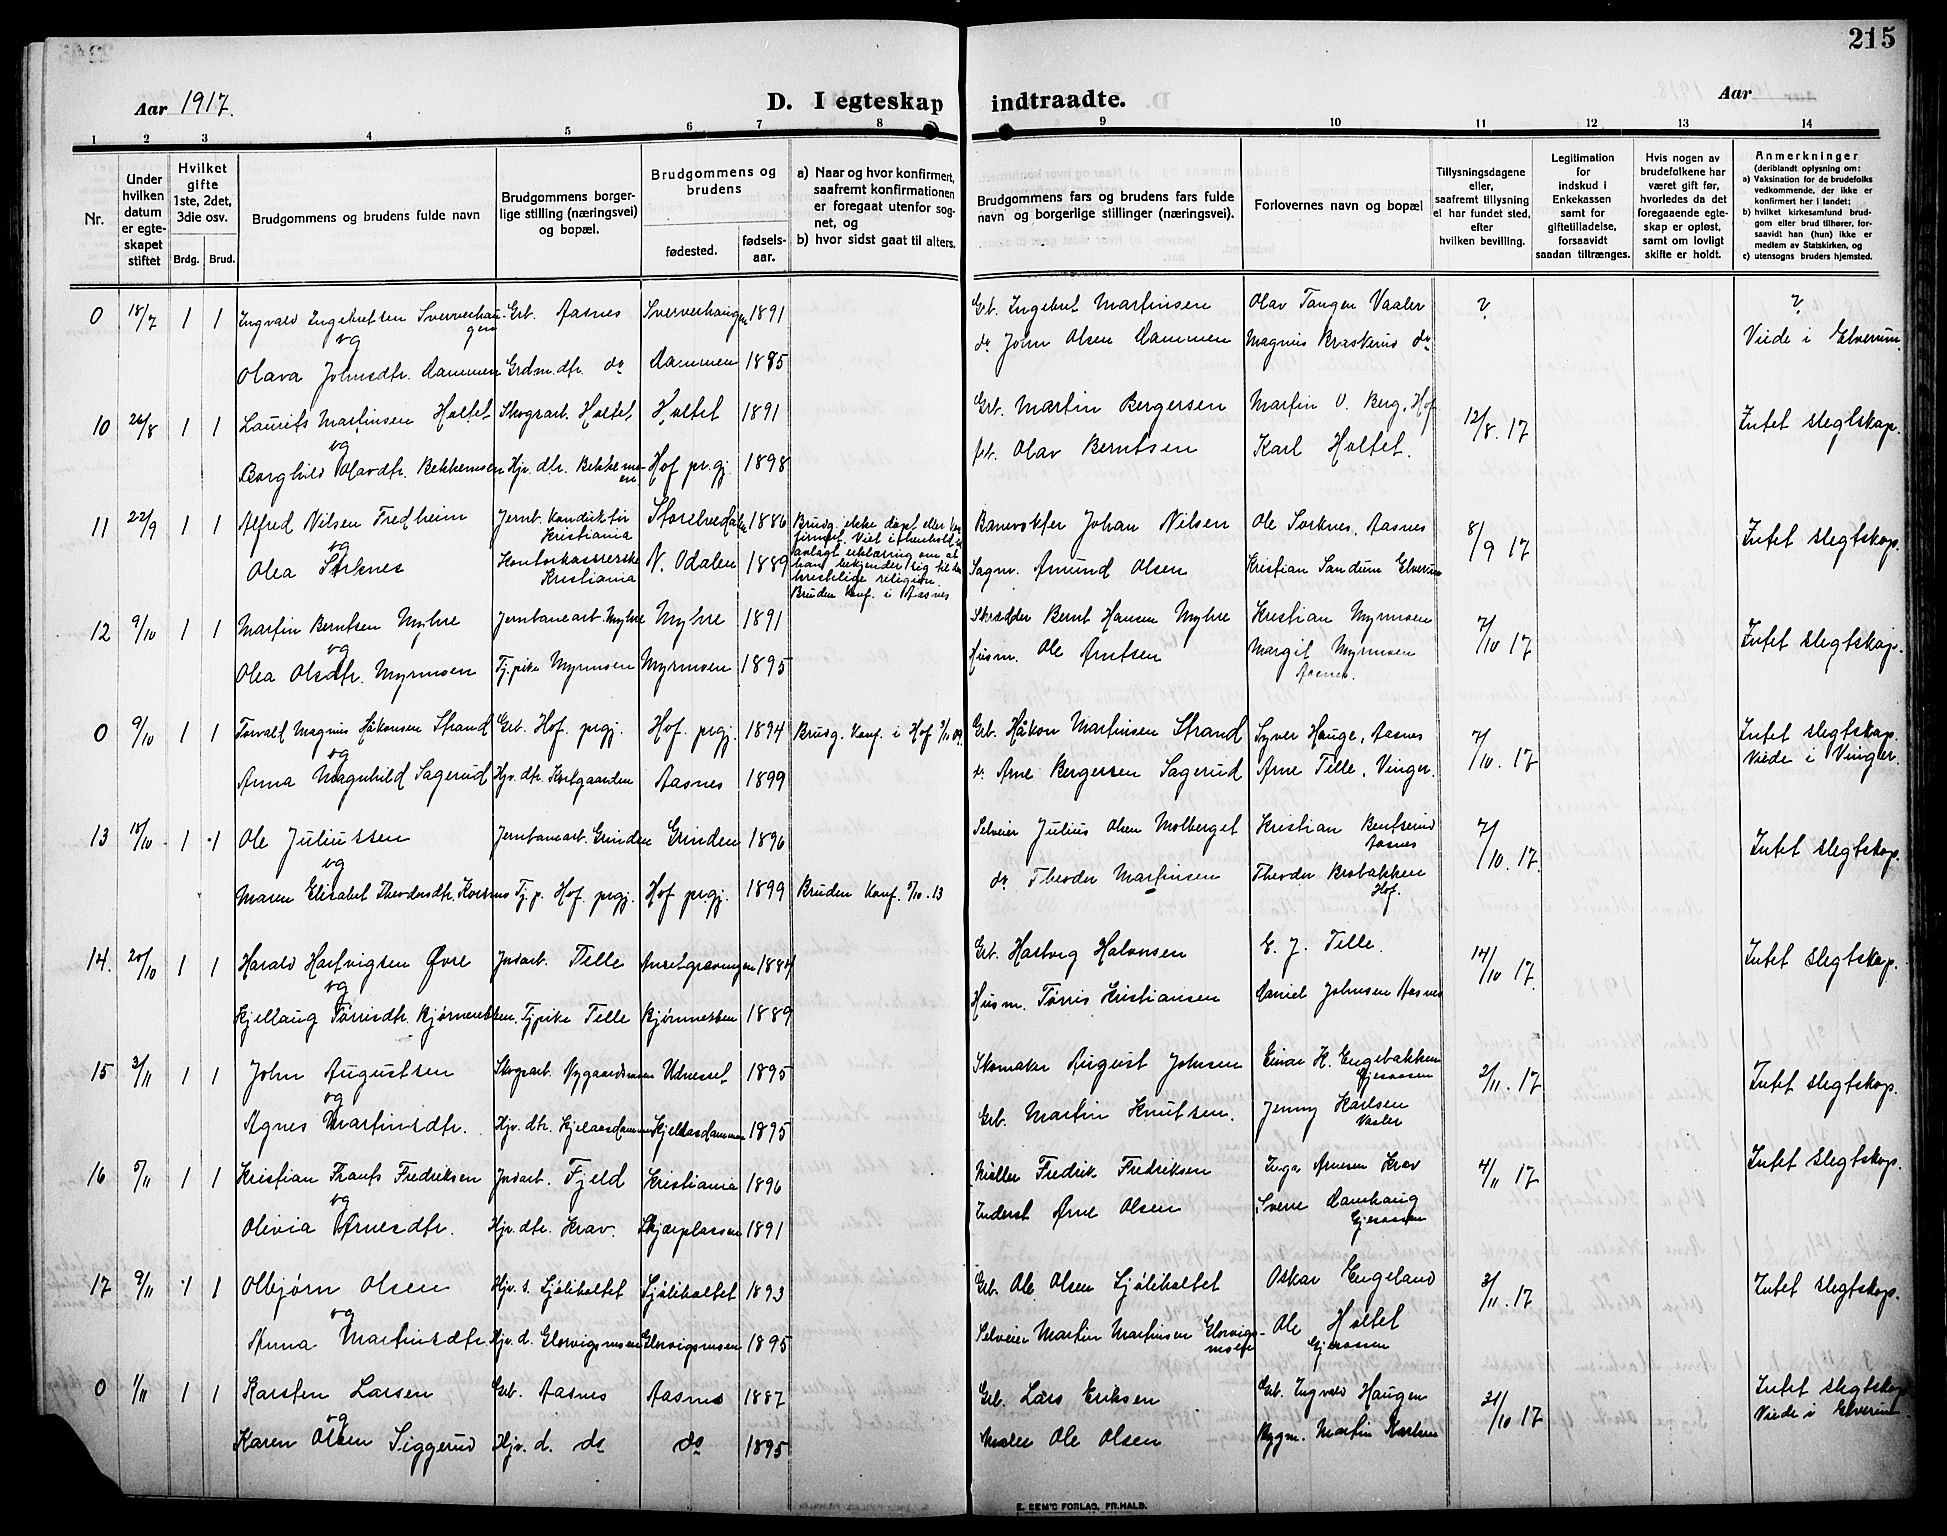 215
Aar 1917.
D. I egteskap indtraadte.
Aar
1 2 3 4 5 6 7 8 9 10 11 12 13 14
Nr.
Under hvilken datum er egteskapet stiftet
Hvilket gifte 1ste, 2det, 3die osv.
Brdg. Brud.
Brudgommens og brudens fulde navn
Brudgommens borgerlige stilling (næringsvei) og bopæl.
Brudgommens og brudens
fødested.
fødselsaar.
a) Naar og hvor konfirmert, saafremt konfirmationen er foregaat utenfor sognet, og
b) hvor sidst gaat til alters.
Brudgommens fars og brudens fars fulde navn og borgerlige stillinger (næringsvei).
Forlovernes navn og bopæl
Tillysningsdagene eller, saafremt tillysning ei har fundet sted, efter hvilken bevilling.
Legitimation for indskud i Enkekassen samt for giftetilladelse, forsaavidt saadan tiltrænges.
Hvis nogen av brudefolkene har været gift før, hvorledes da det foregaaende egteskap er opløst, samt om lovligt skifte er holdt.
Anmerkninger
(deriblandt oplysning om:
a) Vaksination for de brudefolks vedkommende, der ikke er konfirmert her i landet:
b) hvilket kirkesamfund brudgom eller brud tilhører, forsaavidt han (hun) ikke er medlem av Statskirken, og
c) utensogns bruders hjemsted.
0 18/7 1 1 Ingvald Ingebretsen Sververhaugen Grb. Aasnes Sververhaugen 1891 Grb. Ingebret Martinsen Olav Tangen Vaaler
og
Olava Johnsdtr. Dammen Grdm.dtr. do Dammen 1885 do John Olsen Dammen Magnus Braskerud do Viede i Elverum.
10 26/8 1 1 Laurits Martinsen Holtet Skogarb. Holtet Holtet 1891 Grb. Martin Bergersen Martin O. Berg, Hof 12/8. 17 Intet slegtskap.
og
Borghild Olavdtr. Bekkemoen Hjv. dtr. Bekkemoen Hof pr.gj. 1898 Olav Berntsen Karl Holtet.
11 22/9 1 1 Alfred Nilsen Fredheim Jernb. Konduktør Kristiania 1886 Banevokter Johan Nilsen Ole Sorknes, Aasnes 8/9 17 Intet slegtskap.
og
Olea Sorknes Kontorkassererske Kristiania N. Odalen 1889 Sagm. Amund Olsen Kristian Sandum Elverum
Brudg. ikke døpt eller konfirmert. Viet i henhold til avlagt erklæring om at han bekjender sig til den kristelige religion.
Bruden Konf. i Aasnes
12 9/10 1 1 Martin Berntsen Myhre Jernbanearb. Myhre Myhre 1891 Skrædder Bernt Hansen Myhre Kristian Myrmoen 7/10 17 Intet slegtskap.
og
Olea Olsdtr. Myrmoen Tj.pike Myrmoen Myrmoen 1895 Husm. Ole Arntsen Margit Myrmoen Aasnes.
0 9/10 1 1 Torvald Magnus Håkonsen Strand Grb. Hof prgj. Hof. prgj. 1894 Brudg. Konf. i Hof Grb. Håkon Martinsen Strand Syver Hauge, Aasnes 7/10. 17 Intet slegtskap.
og
Anna Magnhild Sagerud Hjv. dtr. Kortgaarden Aasnes 1899 do Arne Bergersen Sagerud Arne Tille, Vinger. Viede i Vinger.
13 18/10 1 1 Ole Juliussen Jernbanearb. Grinden Grinden 1896 Selveier Julius Olsen Molberget Kristian Bentserud Aasnes 7/10. 17. Intet slegtskap.
og
Maren Elisabet Theodorsdtr. Tj. p. Hof. prgj. Hof prgj. 1899 Bruden Konf. 5/10. 13 do Theodor Martinsen Theodor Brobakken Hof.
14. 20/10 1 1 Harald Hartvigsen Øvre Jordarb. Tille 1884 Grb. Hartvig Halvorsen E. J. Tille. 14/10 17. Intet slegtskap.
og
Kjellaug Tørrisdtr. Bjørnnessen. Tj.pike Tille Bjørnnessen 1889 Husm. Tørris Kristiansen Daniel Johnsen Aasnes
15 3/11 1 1 John Augustsen Skogarb. Nygaardsmoen Udnesset 1895 Skomaker August Johnsen Einar H. Engebakken Gjesaasen 2/11. 17 Intet slegtskap.
og
Agnes Martinsdtr. Hjv. dtr. Kjelaasdammen Kjellaasdammen 1895 Grb. Martin Knutsen. Jenny Karlsen Vaaler
16 5/11 1 1 Kristian Frants Fredriksen Jordarb. Fjeld Kristiania 1896 Møller Fredrik Fredriksen Inga Arnesen Krav 4/11 17 Intet slegtskap.
og
Olivia Arnesdtr. Hjv. dtr. Krav. Skjærplassen 1891 Inderst Arne Olsen Sverre Damhaug Gjesaasen
17 9/11 1 1 Olbjørn Olsen Hjv. s. Sjøliholtet Sjøliholtet 1893 Grb. Ole Olsen Sjøliholtet Oskar Engeland 3/11. 17 Intet slegtskap.
og
Anna Martinsdtr. Hjv. d. Glorvigsmoen Glorvigsmoen 1895 Selveier Martin Martinsen Glorvigsmoen Ole Holtet Gjesaasen
0 1/11 1 1 Karsten Larsen Grb. Aasnes Aasnes 1887 Grb. Lars Eriksen Grb. Ingvald Haugen 31/10 17 Intet slegtskap
og
Karen Olsen Siggerud Hjv. d. do do 1895 Maler Ole Olsen Bygm. Martin Karlsen Viede i Elverum.
E. SEM'S FORLAG, FR.HALD.